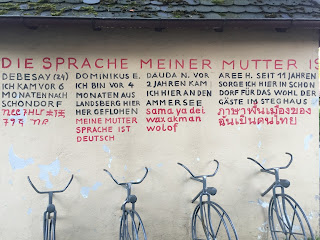 DIE SPRACHE MEINER MUTTER IS
DEBESAY (24)
ICH KAM VOR 6
MONATEN NACH
SCHONDORF
DOMINIKUS E.
ICH BIN VOR 4
MONATEN AUS
LANDSBERG HIER
HER GEFLOHEN
MEINE MUTTER
SPRACHE IST
DEUTSCH
DAUDA N. VOR
2 JAHREN KAM
ICH HIER AN DEN
AMMERSEE
sama ya dei
wax akman
wolof
AREE H. SEIT 11 JAHREN
SORGE ICH HIER IN SCHON
DORF FÜR DAS WOHL DER
GÄSTE IN STEGHAUS
ภาษาพื้นเมืองของ
ฉันเป็นคนไทย